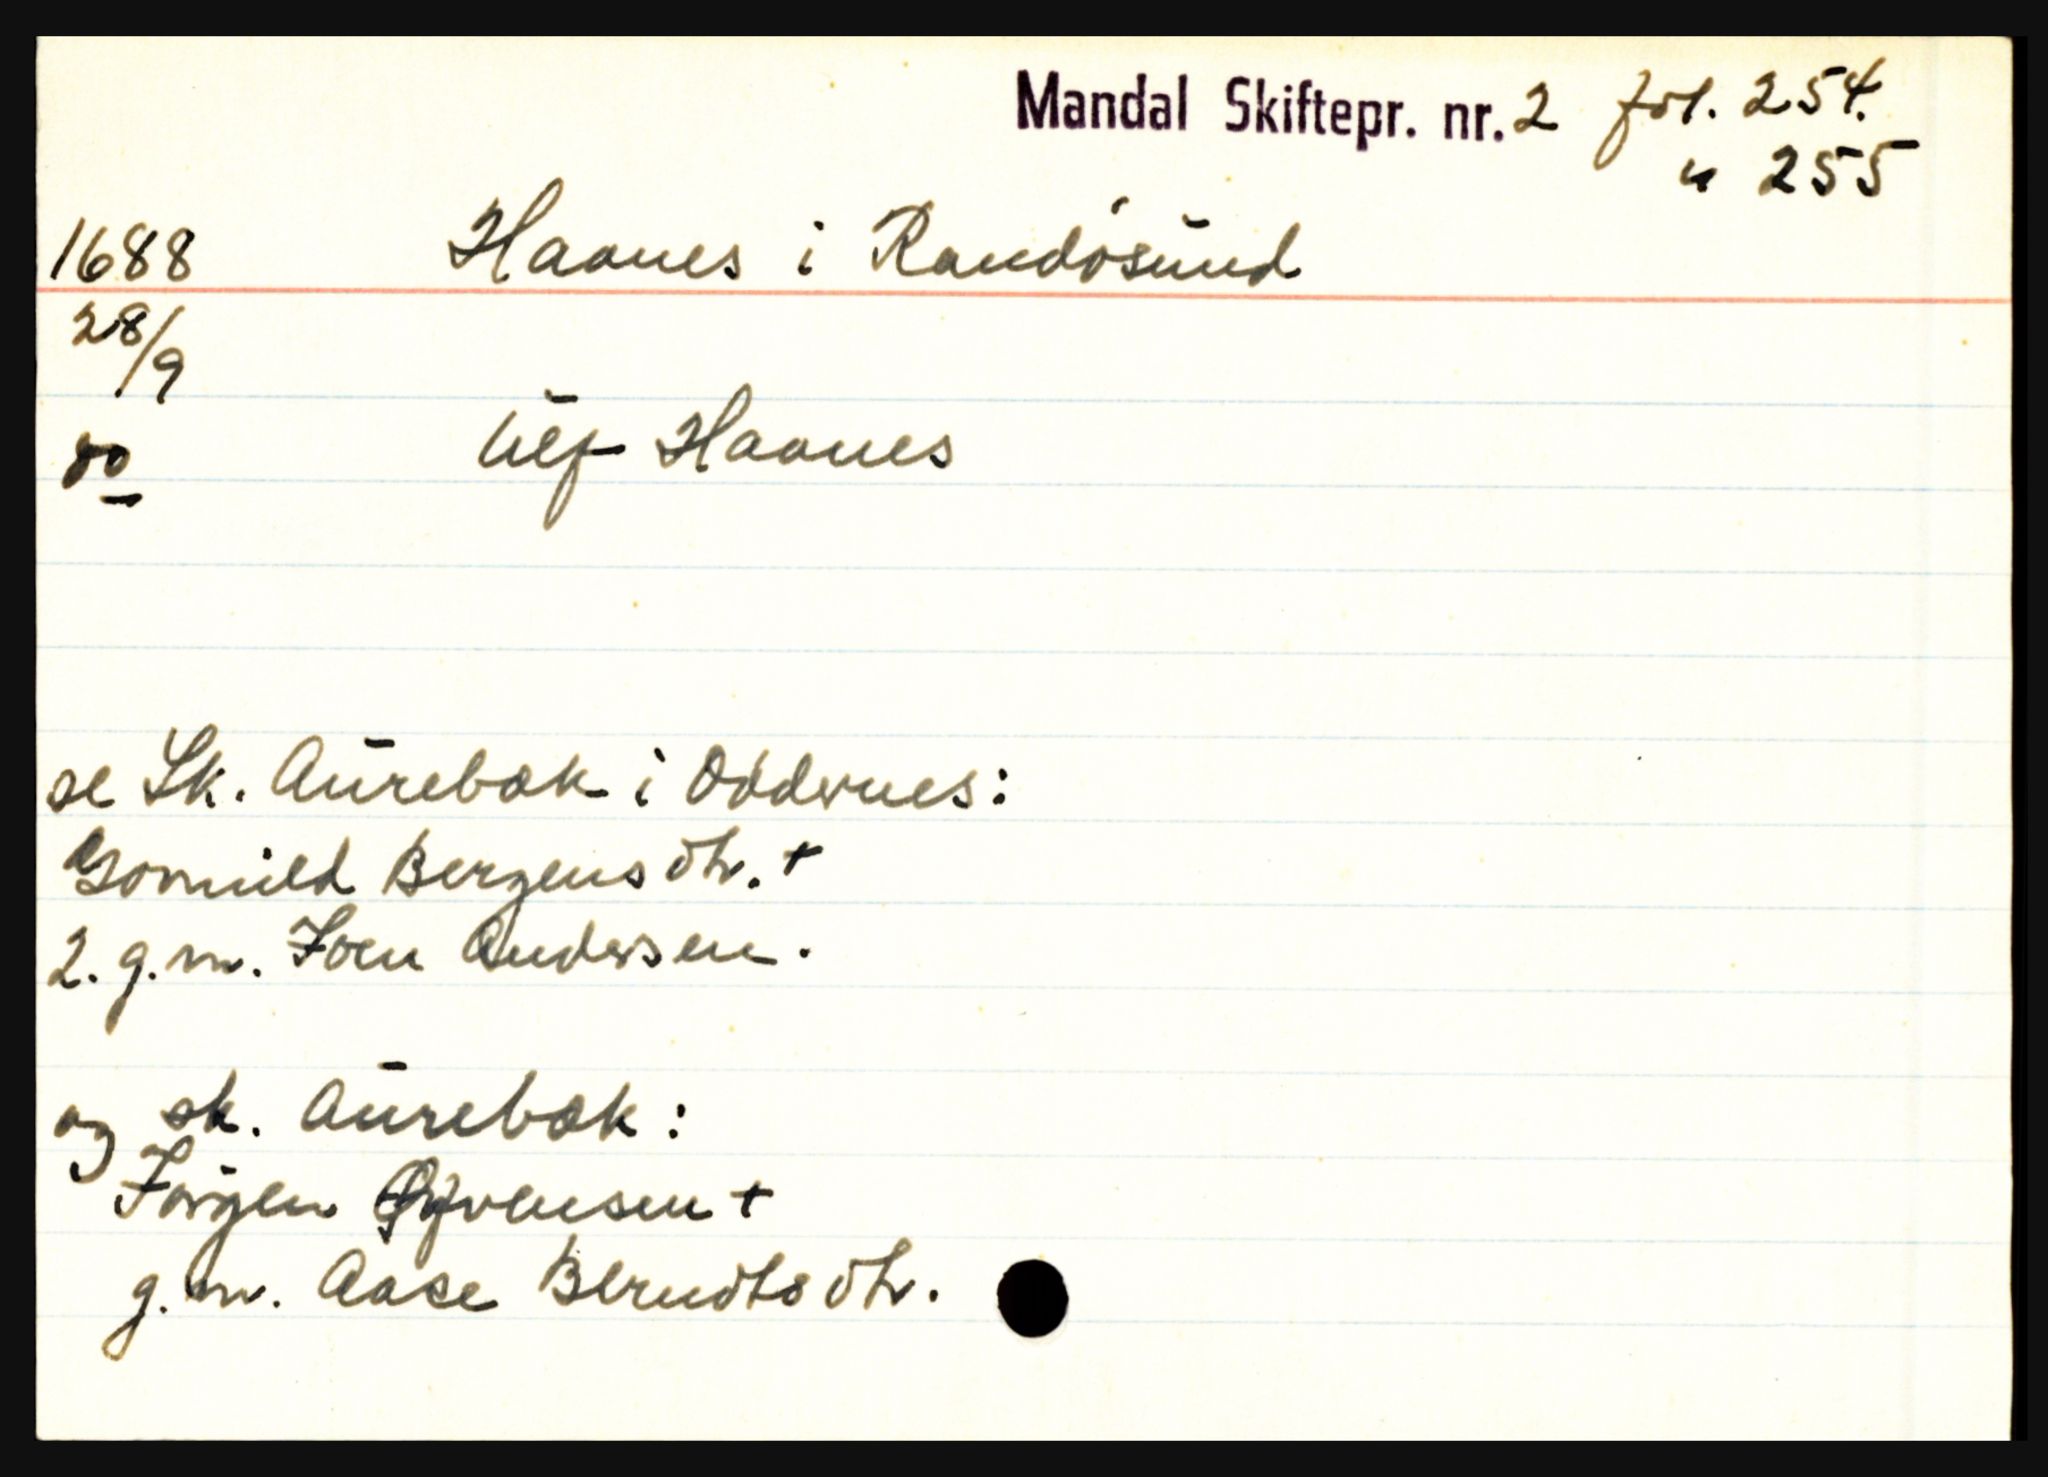 Mandal Skiftepr. nr. 2 fol. 254.
" 255
1688 Haanes i Randøsund
28/9
do Ulf Haanes
se Sk. Aurebæk i Oddernes:
Gonnild Bergensdtr. +
2. g.m. Joen Andersen.
og sk. Aurebæk:
Jørgen Øyvensen +
g.m. Aase Berndtsdtr.